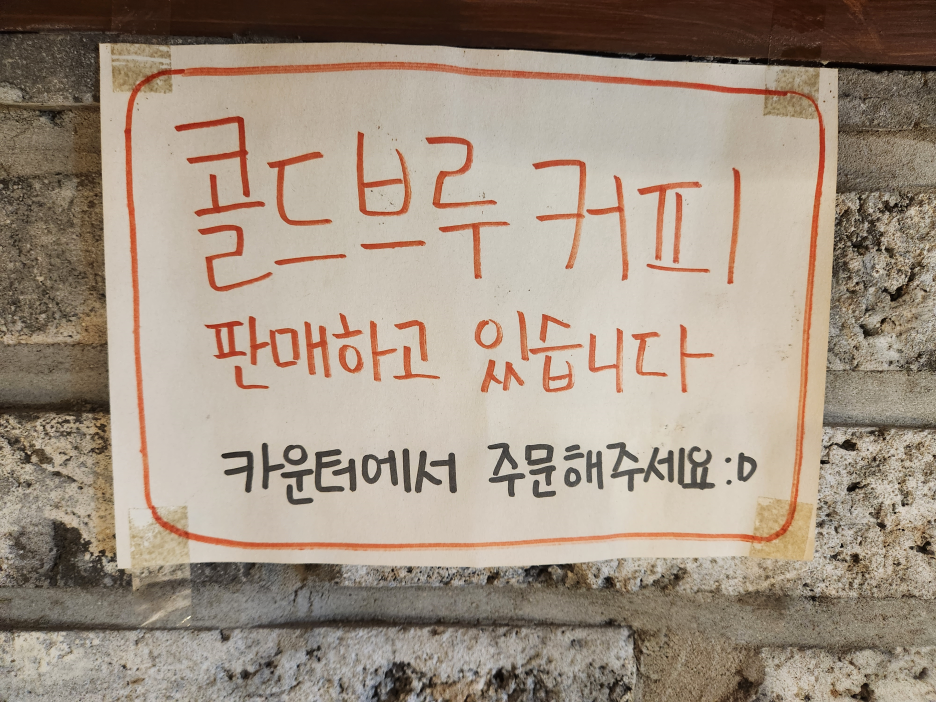 콜드브루 커피
판매하고 있습니다
카운터에서 주문해주세요:D